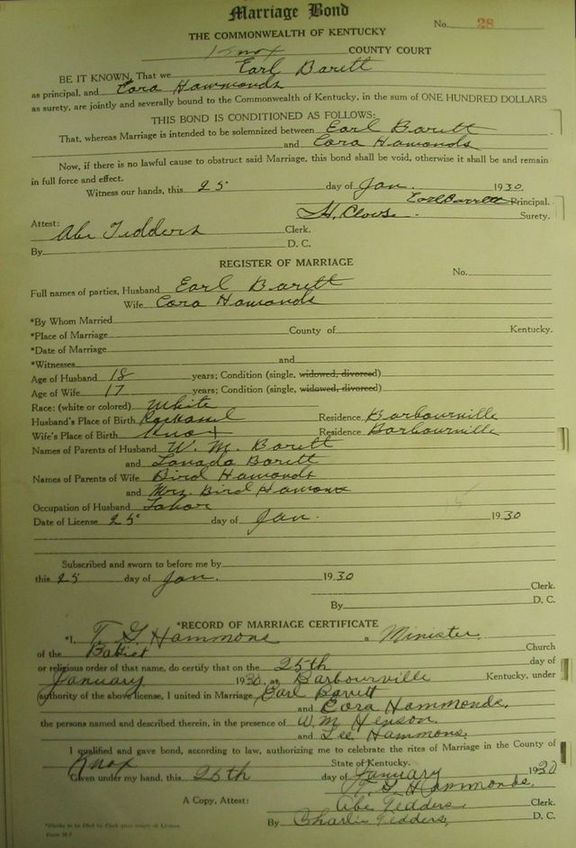 Marriage Bond
No. 28
THE COMMONWEALTH OF KENTUCKY
Knox COUNTY COURT
BE IT KNOWN, That we Earl Barett
as principal, and Cora Hammonds
as surety, are jointly and severally bound to the Commonwealth of Kentucky, in the sum of ONE HUNDRED DOLLARS
THIS BOND IS CONDITIONED AS FOLLOWS:
That, whereas Marriage is intended to be solemnized between Earl Barett
and Cora Hamonds
Now, if there is no lawful cause to obstruct said Marriage, this bond shall be void, otherwise it shall be and remain
in full force and effect.
Witness our hands, this 25 day of Jan. 1930.
Earl Barrett Principal.
Surety.
Attest:
Abe Tedders Clerk.
By D. C.
REGISTER OF MARRIAGE
No.
Full names of parties, Husband Earl Barett
Wife Cora Hamonds
*By Whom Married
*Place of Marriage County of Kentucky.
*Date of Marriage
*Witnesses and
Age of Husband 18 years; Condition (single, widowed, divorced)
Age of Wife 17 years; Condition (single, widowed, divorced)
Race: (white or colored) White
Husband's Place of Birth Residence Barbourville
Wife's Place of Birth Knox Residence Barbourville
Names of Parents of Husband W. M. Barett
and Barett
Names of Parents of Wife Bird Hamonds
and Mrs. Bird Hamons
Occupation of Husband Labor
Date of License 25 day of Jan. 1930
Subscribed and sworn to before me by
this 25 day of Jan. 1930
Clerk.
By D. C.
*RECORD OF MARRIAGE CERTIFICATE
*I, T. G. Hammons a Minister
of the Babtist Church
or religious order of that name, do certify that on the 25th day of
January 1930, at Barbourville Kentucky, under
authority of the above license, I united in Marriage Earl Barett
and Cora Hammonds,
the persons named and described therein, in the presence of W. M. Henson
and Lee Hammons.
I qualified and gave bond, according to law, authorizing me to celebrate the rites of Marriage in the County of
Knox State of Kentucky.
Given under my hand, this 25th day of January 1930
T. G. Hammonds,
A Copy, Attest: Abe Tedders, Clerk.
By Charlie Tedders, D. C.